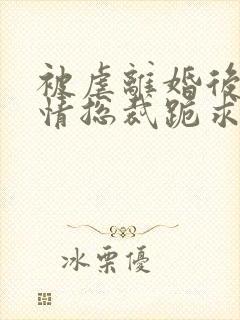 被虐離婚後
情總裁跪求
冰栗優